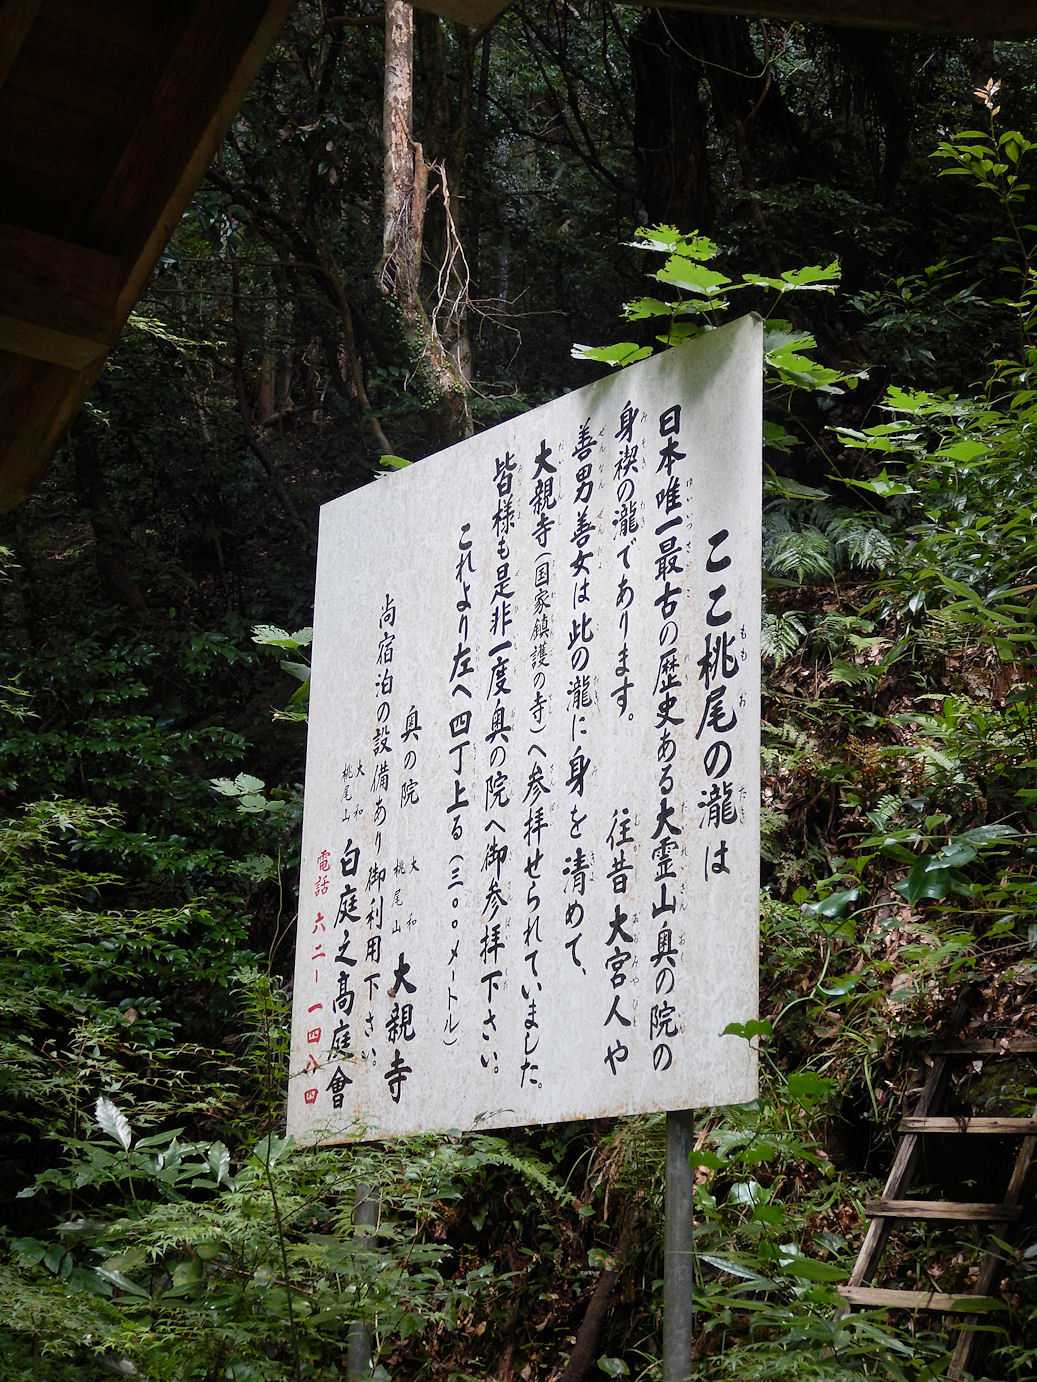 ここ桃尾の瀧は
日本唯一最古の歴史ある大霊山奥の院の
身禊の瀧であります。 往昔大宮人や
善男善女は此の瀧に身を清めて、
大親寺（国家鎮護の寺）へ参拝せられていました。
皆様も是非一度奥の院へ御参拝下さい。
これより左へ四丁上る（三〇〇メートル）
奥の院 大和桃尾山 大親寺
尚宿泊の設備あり御利用下さい。
大和桃尾山 白庭之高庭會
電話 六二ー一四八四